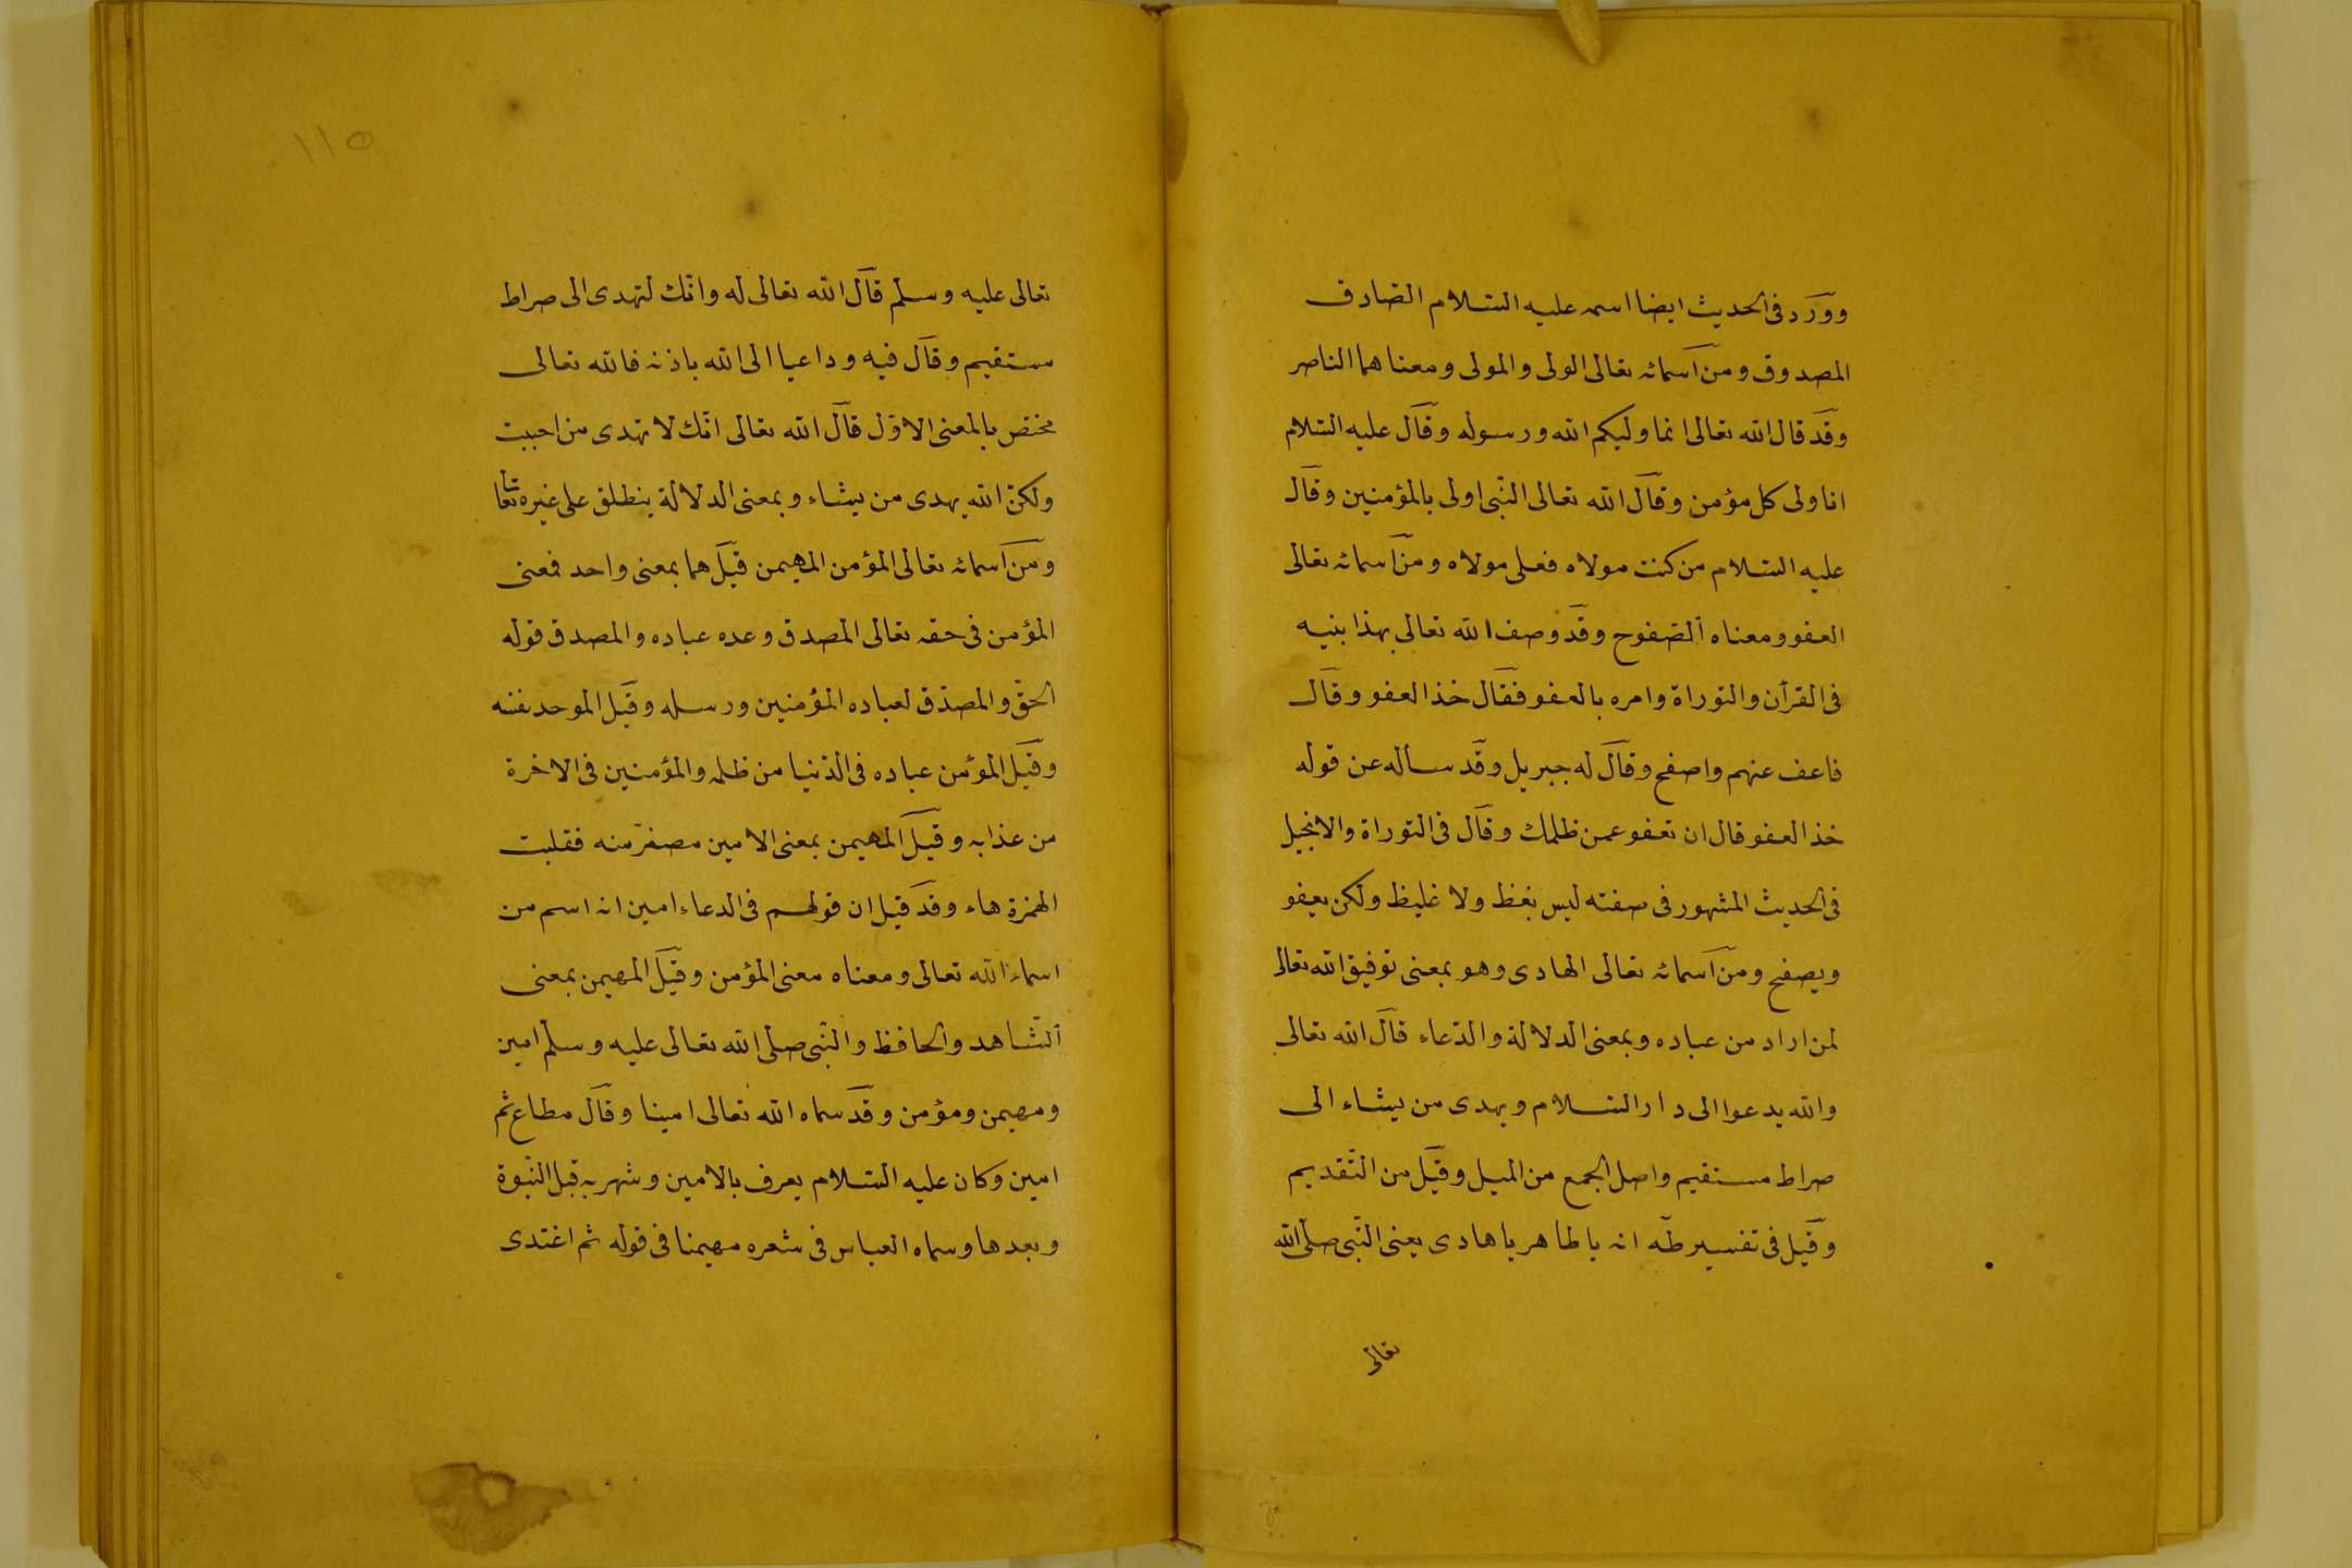 وورد فى الحديث ايضا اسمه عليه السّلام الصّادق
المصدوق ومن اسمائه تعالى الولى والمولى ومعناهما الناصر
وقد قال الله تعالى انما وليكم الله ورسوله وقال عليه السّلام
انا ولى كل مؤمن وقال الله تعالى النّبى اولى بالمؤمنين وقال
عليه السّلام من كنت مولاه فعلى مولاه ومن اسمائه تعالى
العفو ومعناه الصّفوح وقد وصف الله تعالى بهذا بنيه
فى القرآن والتوراة وامره بالعفو فقال خذ العفو وقال
فاعف عنهم واصفح وقال له جبريل وقد سأله عن قوله
خذ العفو قال ان تعفو عمن ظلمك وقال فى التوراة والانجيل
فى الحديث المشهور فى صفته ليس بفظ ولا غليظ ولكن يعفو
ويصفح ومن اسمائه تعالى الهادى وهو بمعنى توفيق الله تعالى
لمن اراد من عباده وبمعنى الدلالة والدّعاء قال الله تعالى
والله يدعوا الى دار السّلام ويهدى من يشاء الى
صراط مستقيم واصل الجمع من الميل وقيل من التّقديم
وقيل فى تفسير طه انه يا طاهر يا هادى يعنى النّبى صلّى الله
تعالى
١١٥
تعالى عليه وسلم قال الله تعالى له وانّك لتهدى الى صراط
مستقيم وقال فيه وداعيا الى الله باذنه فالله تعالى
مختصّ بالمعنى الاوّل قال الله تعالى انّك لا تهدى من احببت
ولكنّ الله يهدى من يشاء وبمعنى الدلالة ينطلق على غيره تعالى
ومن اسمائه تعالى المؤمن المهيمن قيل هما بمعنى واحد فمعنى
المؤمن فى حقه تعالى المصدق وعده عباده والمصدق قوله
الحقّ والمصدّق لعباده المؤمنين ورسله وقيل الموحد نفسه
وقيل المؤمن عباده فى الدّنيا من ظلمه والمؤمنين فى الاخرة
من عذابه وقيل المهيمن بمعنى الامين مصغّر منه فقلبت
الهمزة هاء وقد قيل ان قولهم فى الدعاء امين انه اسم من
اسماء الله تعالى ومعناه معنى المؤمن وقيل المهيمن بمعنى
الشّاهد والحافظ والنّبى صلى الله تعالى عليه وسلّم امين
ومهيمن ومؤمن وقد سماه الله تعالى امينا وقال مطاع ثم
امين وكان عليه السّلام يعرف بالامين وشهر به قبل النّبوة
وبعدها وسماه العباس فى شعره مهيمنا فى قوله ثم اغتدى